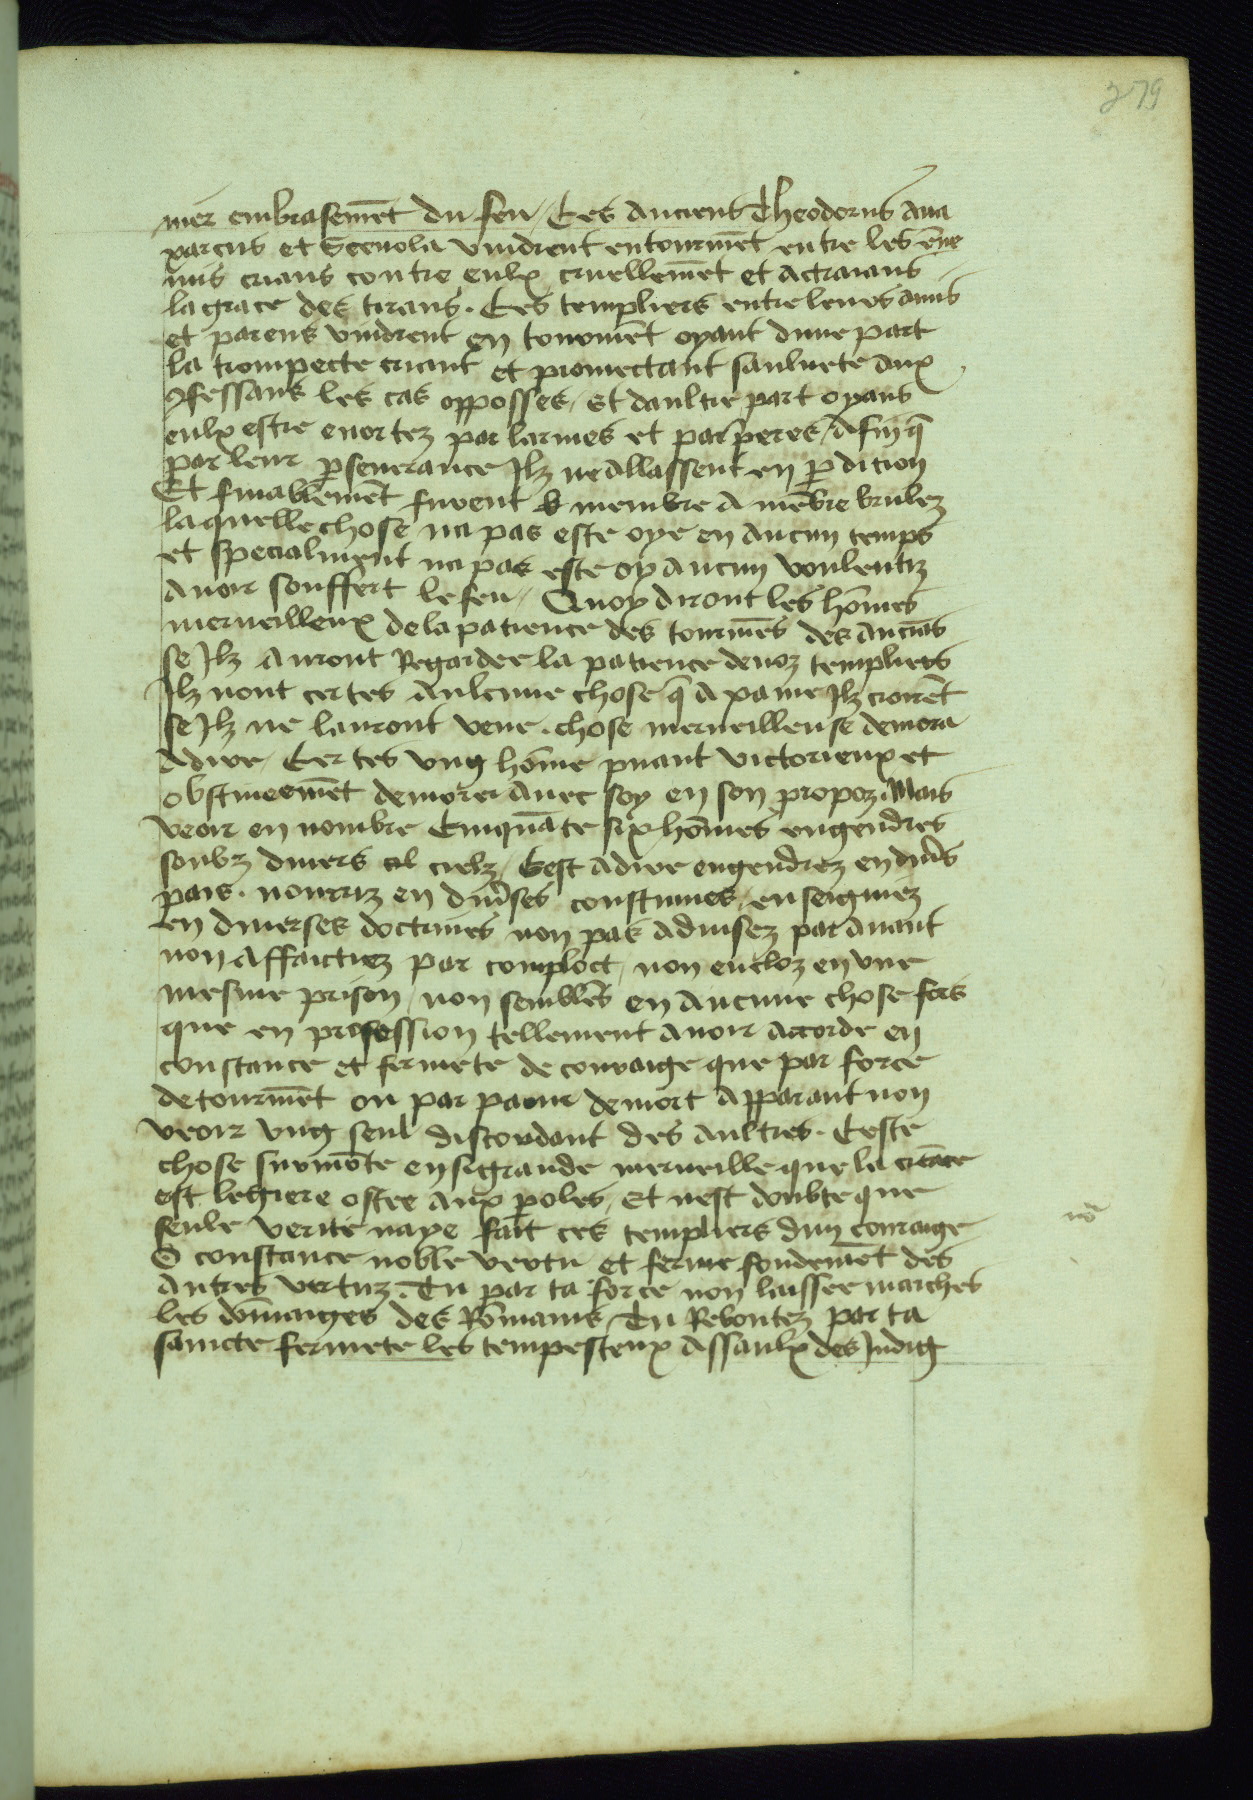 279
mer embrasemēt du feu / Ces anciens Theodorus ana
parcus et Sceuola vindrent en tourmēt entre les ēne
mis crians contre eulx cruellemēt et actraians
la grace des tirans . Ces templiers entre leurs amis
et parens vindrent en tourmēt oyant dune part
la trompecte criant et promectant sauluete aux
ꝯfessans les cas opposses / et daultre part oyans
eulx estre enortez par larmes et par peres / afin q̄
par leur ꝑseuerance Ilz ne allassent en ꝑdition
Et finablemēt furent membre a mēbre brulez
laquelle chose na pas este oye en aucun temps
et specialment na pas este oy aucun voulentiz
auoir souffert le feu / Quoy diront les hōmes
merueilleux de la patience des tourmēs des anciās
se Ilz auront Regardee la patience de noz templiers
Ilz nont certes aulcune chose q̄ a paine Ilz croirēt
se Ilz ne lauront veue . chose merueilleuse demora
a dire / Certes vng hōme puant victorieux et
obstineemēt demorer auec soy en son propoz . Mais
veoir en nombre Cinquāte six hōmes engendres
soubz diuers cielz / Cest a dire engendrez en diūs
pais . nourriz en diūses coustumes / enseignez
en diuerses doctrines non pas aduisez par auant
non affaictiez par comploct / non encloz en vne
mesme prison / non semblēs en aucune chose fors
que en profession tellement auoir accorde en
constance et fermete de couraige que par force
de tourmēt ou par paour de mort apparant non
veoir vng seul discordant des aultres . Ceste
chose surmōte en si grande merueille que la
est legiere ostee aux ꝑoles / Et nest doubte que
seule verite naye fait ces templiers dun couraige
O constance noble vertu et ferme fondemēt des
autres vertuz . Tu par ta force non laissee marches
les dōmaiges des Rommains / Tu Reboutez par ta
saincte fermete les tempesteux assaulx des Indig
nō